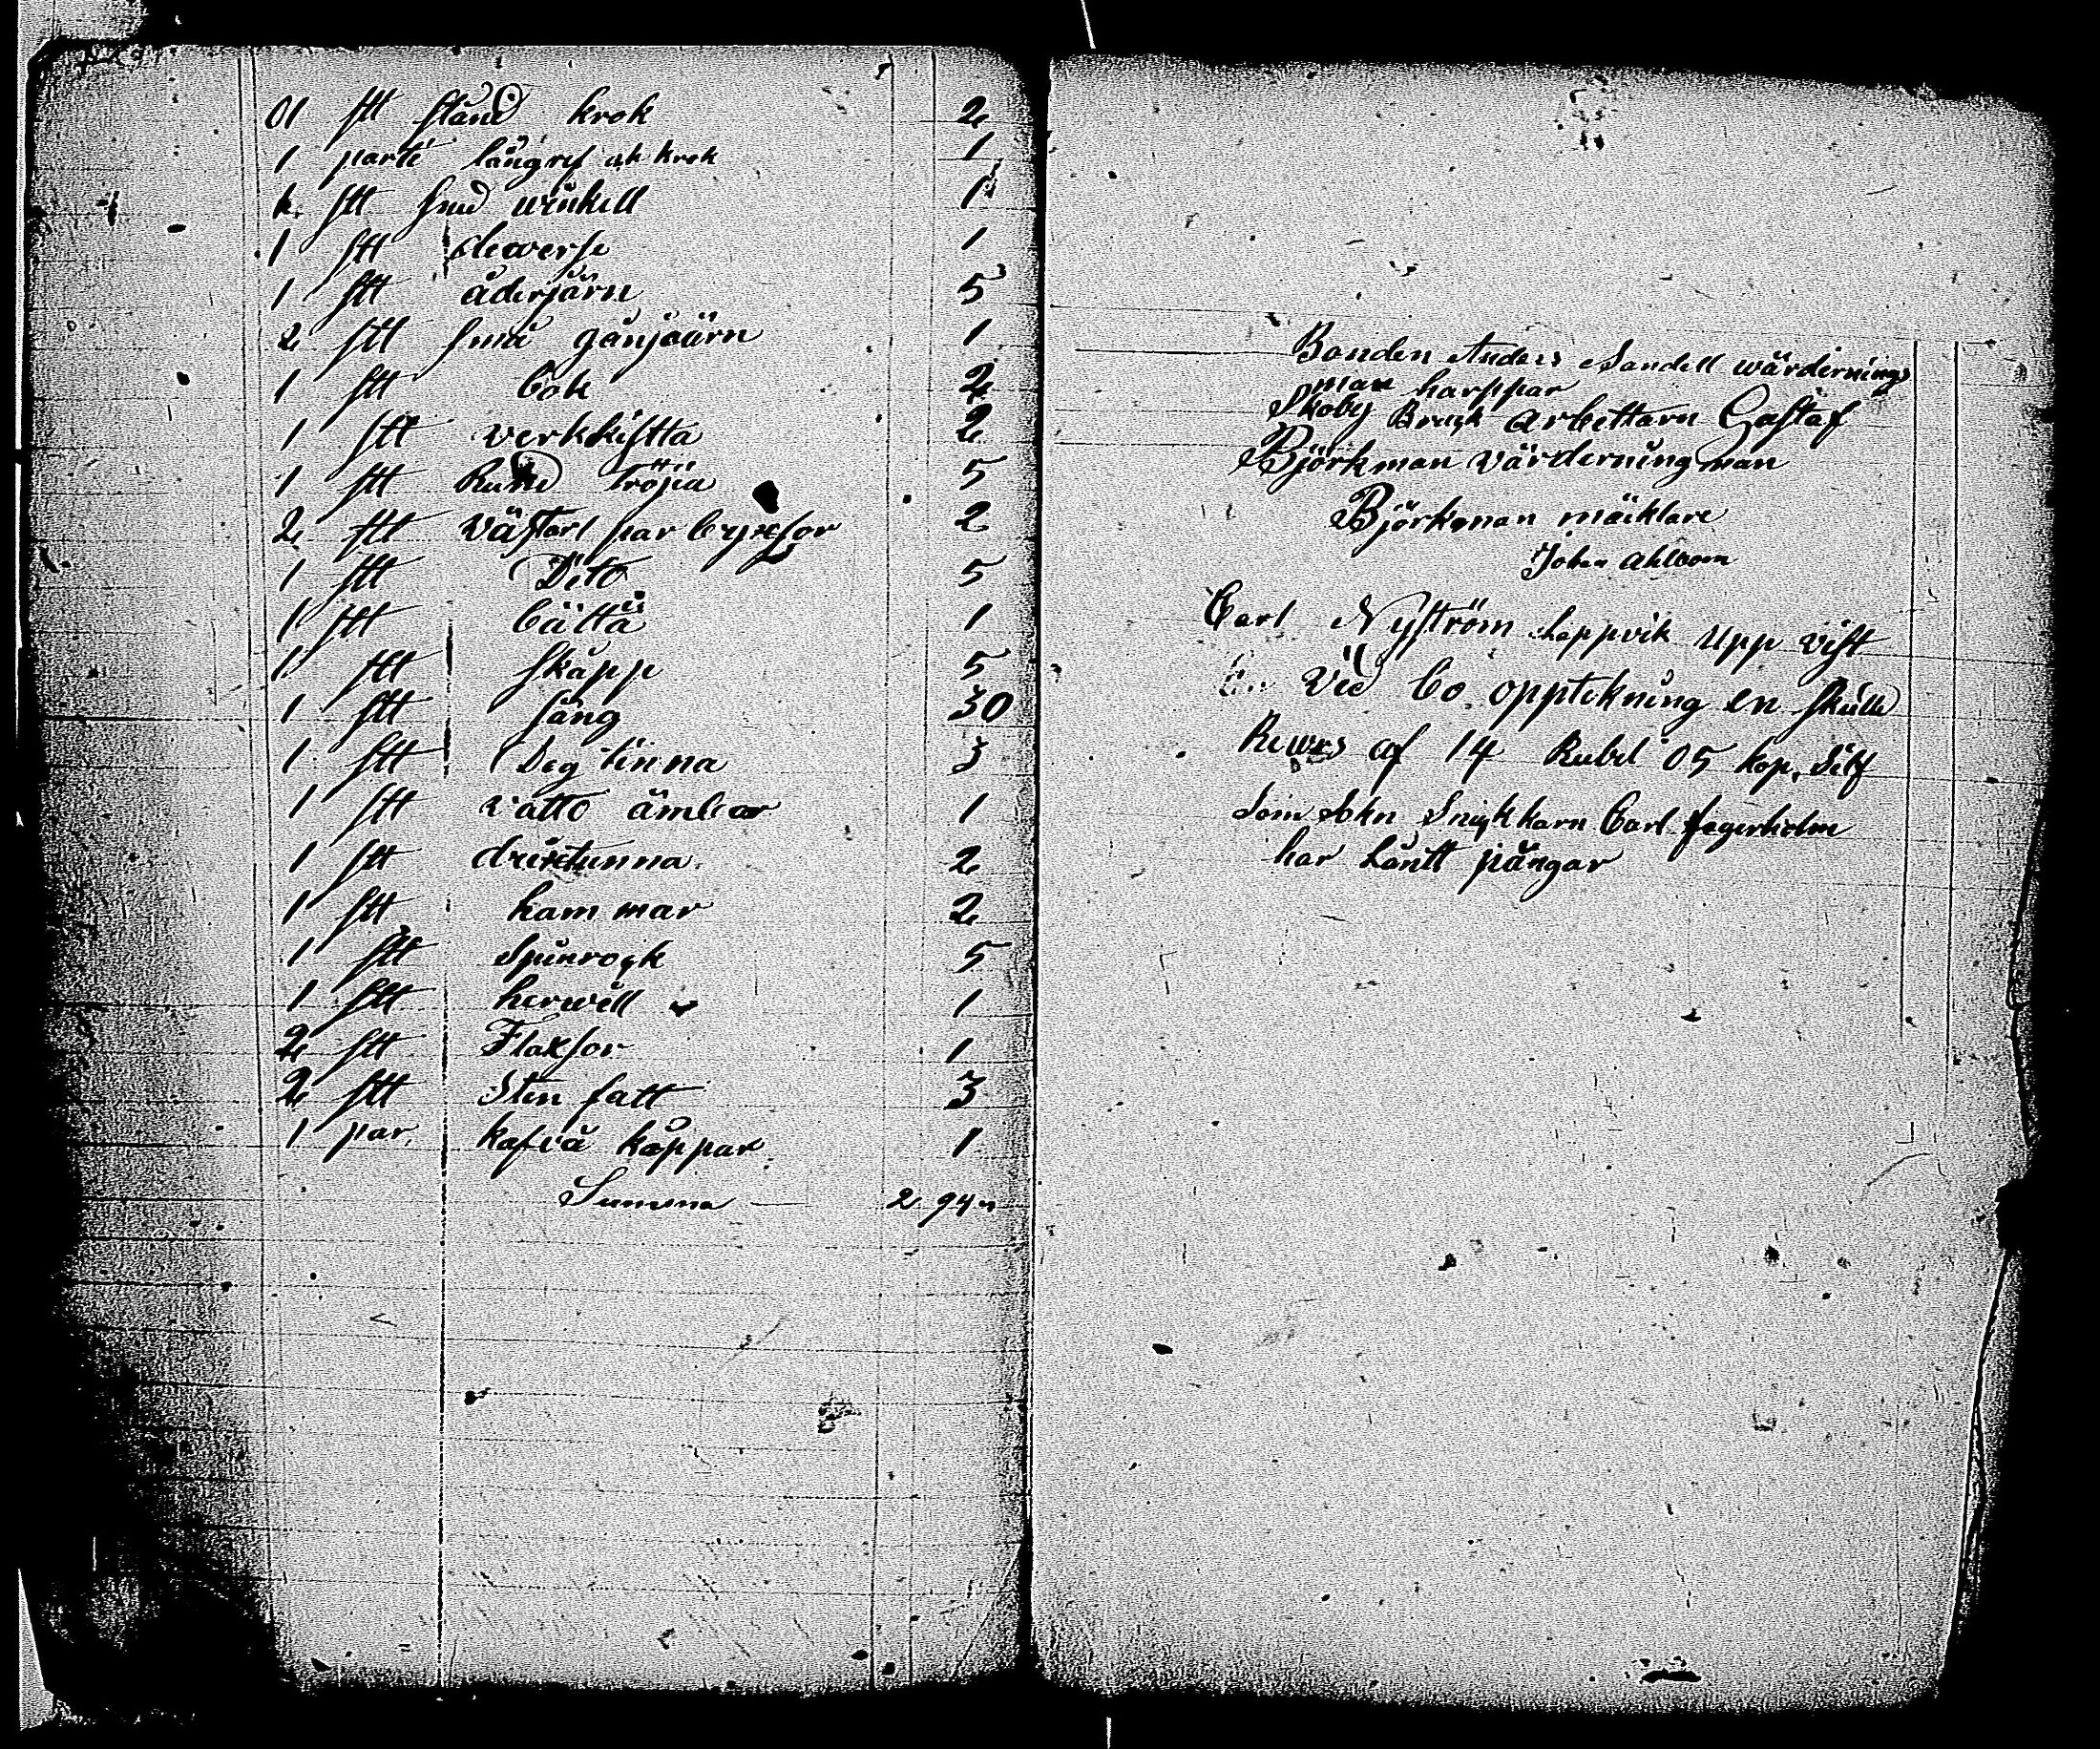 01 stt stånd krok 2
1 parti långref ok krok 1
stt smed winkell 1
1 stt dewerse 1
1 stt åderjärn 5
2 stt små gånjaärn 1
1 stt bok 2
1 stt verkkistta 2
1 stt Rund Tröjia 5
2 stt västorl par byxsor 2
1 stt Dito 5
1 stt båttä 1
1 stt skåpp 5
1 stt säng 30
1 stt Deg tinna 3
1 stt vatto ämbar 1
1 stt drixtunna 2
1 stt kammar 2
1 stt Spinrogk 5
1 stt herwell 1
2 stt Flaksor 1
2 stt Sten fatt 3
1 par kafvä kåppar 1
Summa 2 94
Bonden Anders Sandell wärdernings
man harppar
Skoby Bruk arbettarn Gustaf
Björkman värderningman
Björkman mäiklare
Johan Ahlbom
Carl Nyström Lappvik upp vist
En Ved bo opptikning en skulld
Rewers af 14 Rubel 05 kop. Silf
Som Sokn Snikkarn Carl Segerholm
har låntt pångar